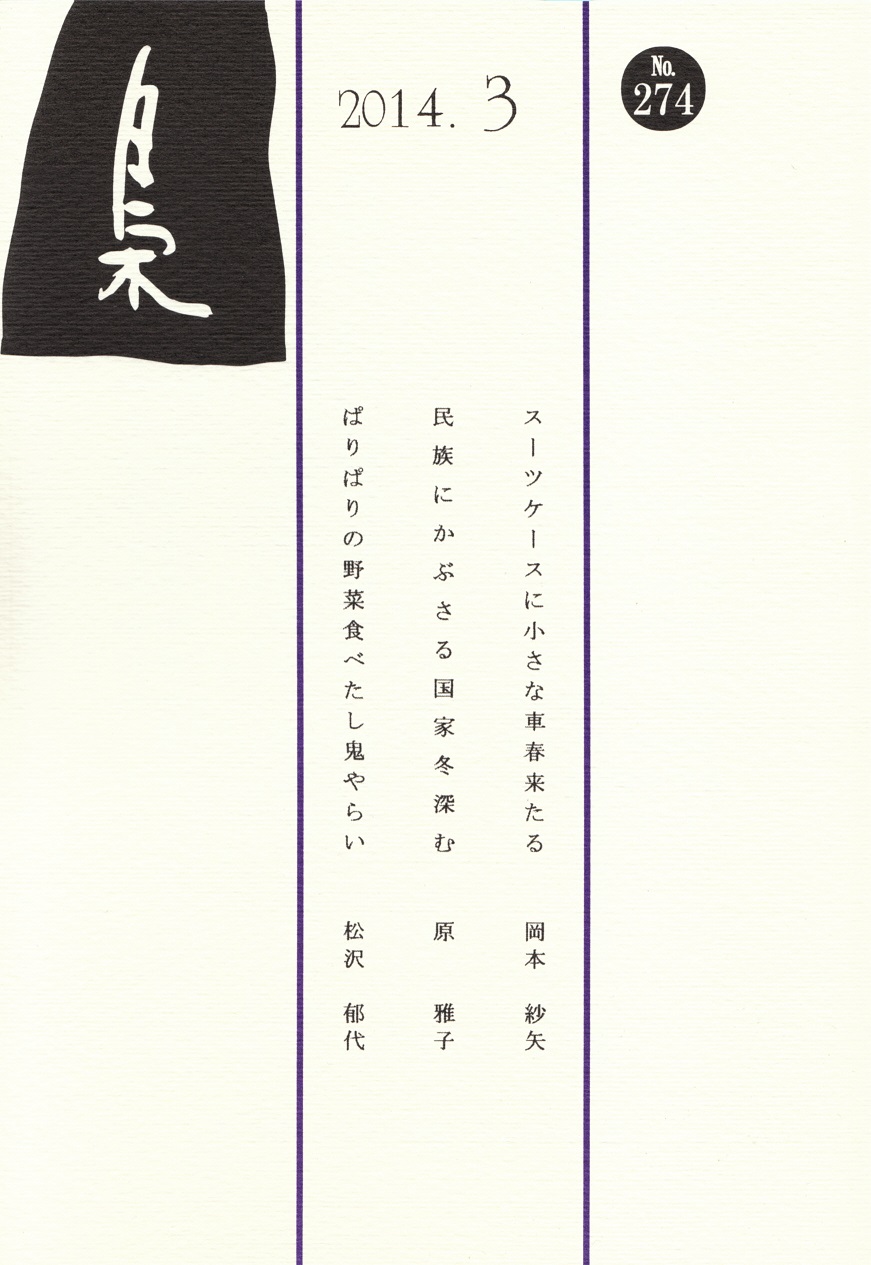 No.
274
2014. 3
スーツケースに小さな車春来たる 岡本 紗矢
民族にかぶさる国家冬深む 原 雅子
ぱりぱりの野菜食べたし鬼やらい 松沢 郁代
梟